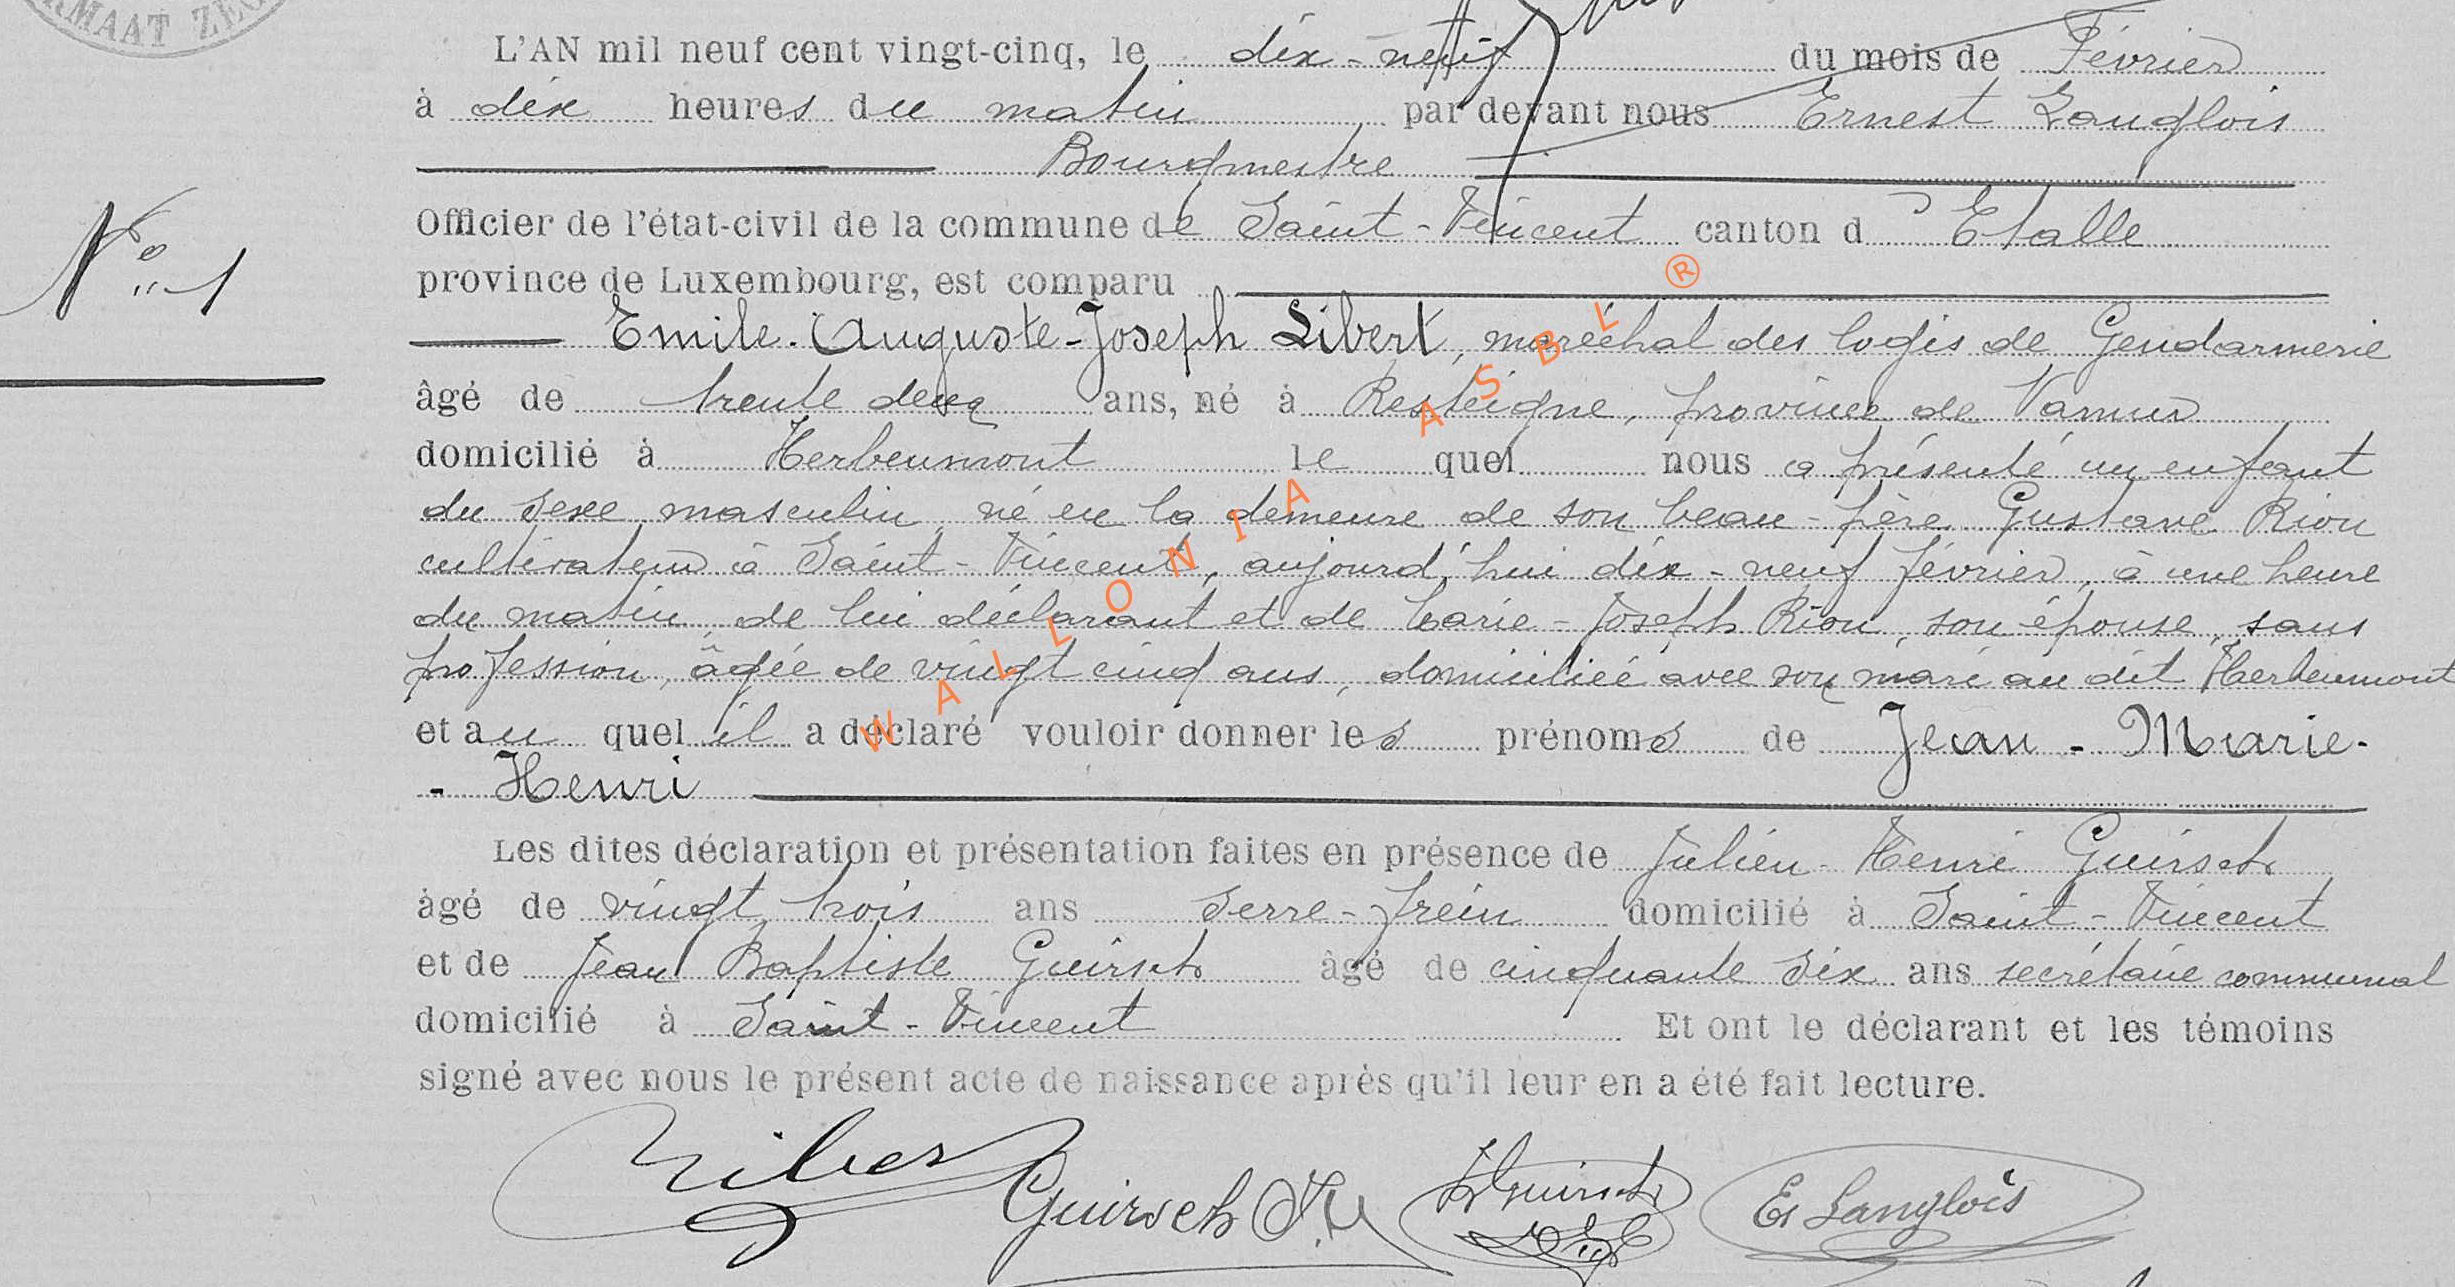 RMAAT ZEG
L'AN mil neuf cent vingt-cinq, le dix-neuf du mois de Février
à dix heures du matin par devant nous Ernest Langlois
Bourgmestre
Officier de l'état-civil de la commune de Saint-Vincent canton d'Etalle
province de Luxembourg, est comparu
N° 1
Emile-Auguste-Joseph Libert, maréchal des logis de Gendarmerie
âgé de trente deux ans, né à Resteigne, province de Namur
domicilié à Herbeumont lequel nous a présenté un enfant
du sexe masculin, né en la demeure de son beau-père Gustave Rion
cultivateur à Saint-Vincent, aujourd'hui dix-neuf février, à une heure
du matin, de lui déclarant et de Marie-Joseph Rion, son épouse, sans
profession, âgée de vingt cinq ans, domiciliée avec son mari au dit Herbeumont
et auquel il a déclaré vouloir donner les prénoms de Jean-Marie-
-Henri
Les dites déclaration et présentation faites en présence de Julien-Henri Guirsch
âgé de vingt trois ans serre-frein domicilié à Saint-Vincent
et de Jean Baptiste Guirsch âgé de cinquante six ans secrétaire communal
domicilié à Saint-Vincent Et ont le déclarant et les témoins
signé avec nous le présent acte de naissance après qu'il leur en a été fait lecture.
Libert Guirsch J.H. Guirsch Er Langlois
WALLONIA ASBL ®